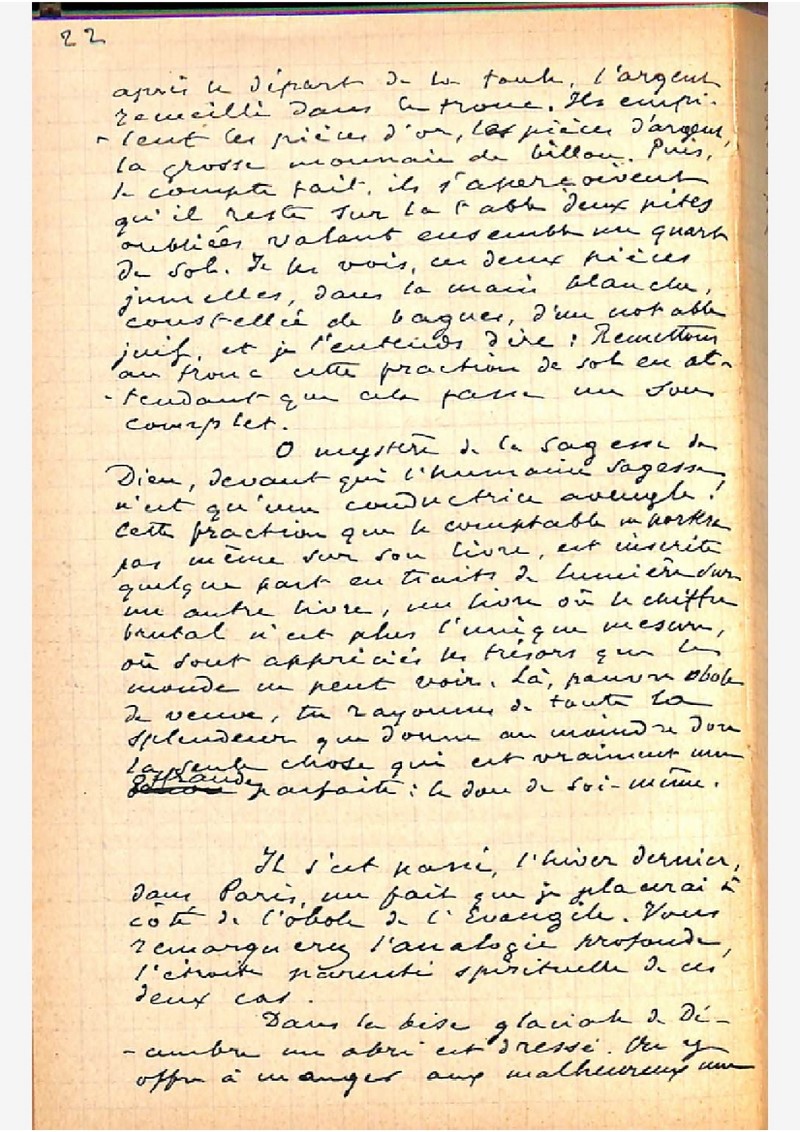 22
après le départ de la foule, l'argent
recueilli dans le tronc. Ils empi-
- lent les pièces d'or, les pièces d'argent,
la grosse monnaie de billon. Puis,
le compte fait, ils s'aperçoivent
qu'il reste sur la table deux pites
oubliées valant ensemble un quart
de sol. Je les vois, ces deux pièces
jumelles, dans la main blanche,
constellée de bagues, d'un notable
juif, et je l'entends dire : Remettons
au tronc cette fraction de sol en at-
- tendant que cela fasse un sou
complet.
O mystère de la sagesse de
Dieu, devant qui l'humaine sagesse
n'est qu'une conductrice aveugle !
Cette fraction que le comptable ne portera
pas même sur son livre, est inscrite
quelque part en traits de lumière sur
un autre livre, un livre où le chiffre
brutal n'est plus l'unique mesure,
où sont appréciés les trésors que le
monde ne peut voir. Là, pauvre obole
de veuve, tu rayonnes de toute la
splendeur que donne au moindre don
la seule chose qui est vraiment une
offrande parfaite : le don de soi-même.
Il s'est passé, l'hiver dernier,
dans Paris, un fait que je placerai à
côté de l'obole de l'Évangile. Vous
remarquerez l'analogie profonde,
l'étroite parenté spirituelle de ces
deux cas.
Dans la bise glaciale de Dé-
- cembre un abri est dressé. On y
offre à manger aux malheureux une